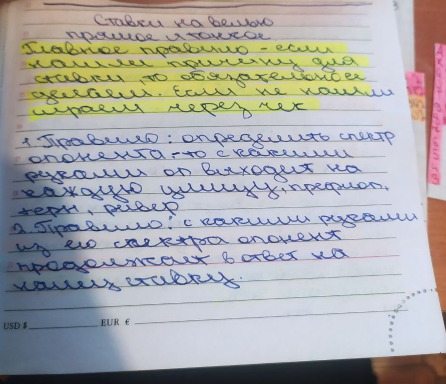 Ставки на велью
прямое и тонкое.
Главное правило - если
нашли причину для
ставки то обязательно ее
делаем. Если не нашли
играем через чек
1. Правило: определить спектр
опонента - то с какими
руками он выходит на
каждую улицу, префлоп,
терн, ривер
2. Правило: с какими руками
из его спектра опонент
продолжает в ответ на
нашу ставку.
USD $ EUR €